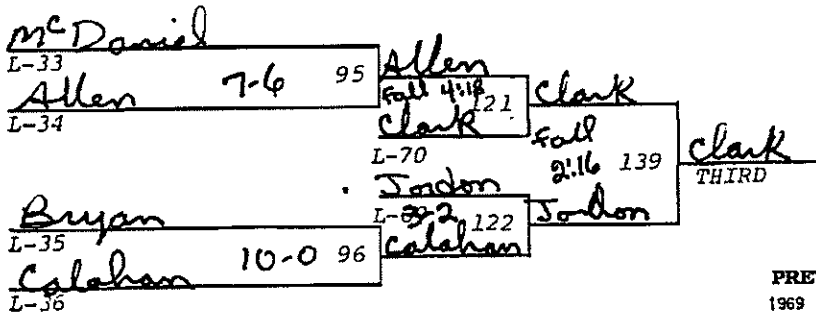 McDaniel
L-33
Allen 7-6 95
L-34
Allen
Fall 4:18 121
Clark
L-70
Clark
Fall
2:16 139
Clark
THIRD
Jordon
3-2 122
Calahan
Jordon
Bryan
L-35
Calahan 10-0 96
L-36
PRE
1969